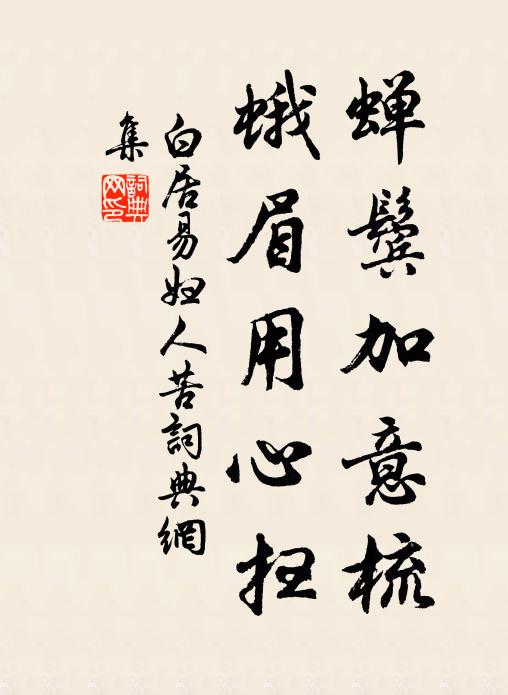 蝉鬓加意梳
蛾眉用心扫
白居易妇人苦詞典網
集
詞典网印